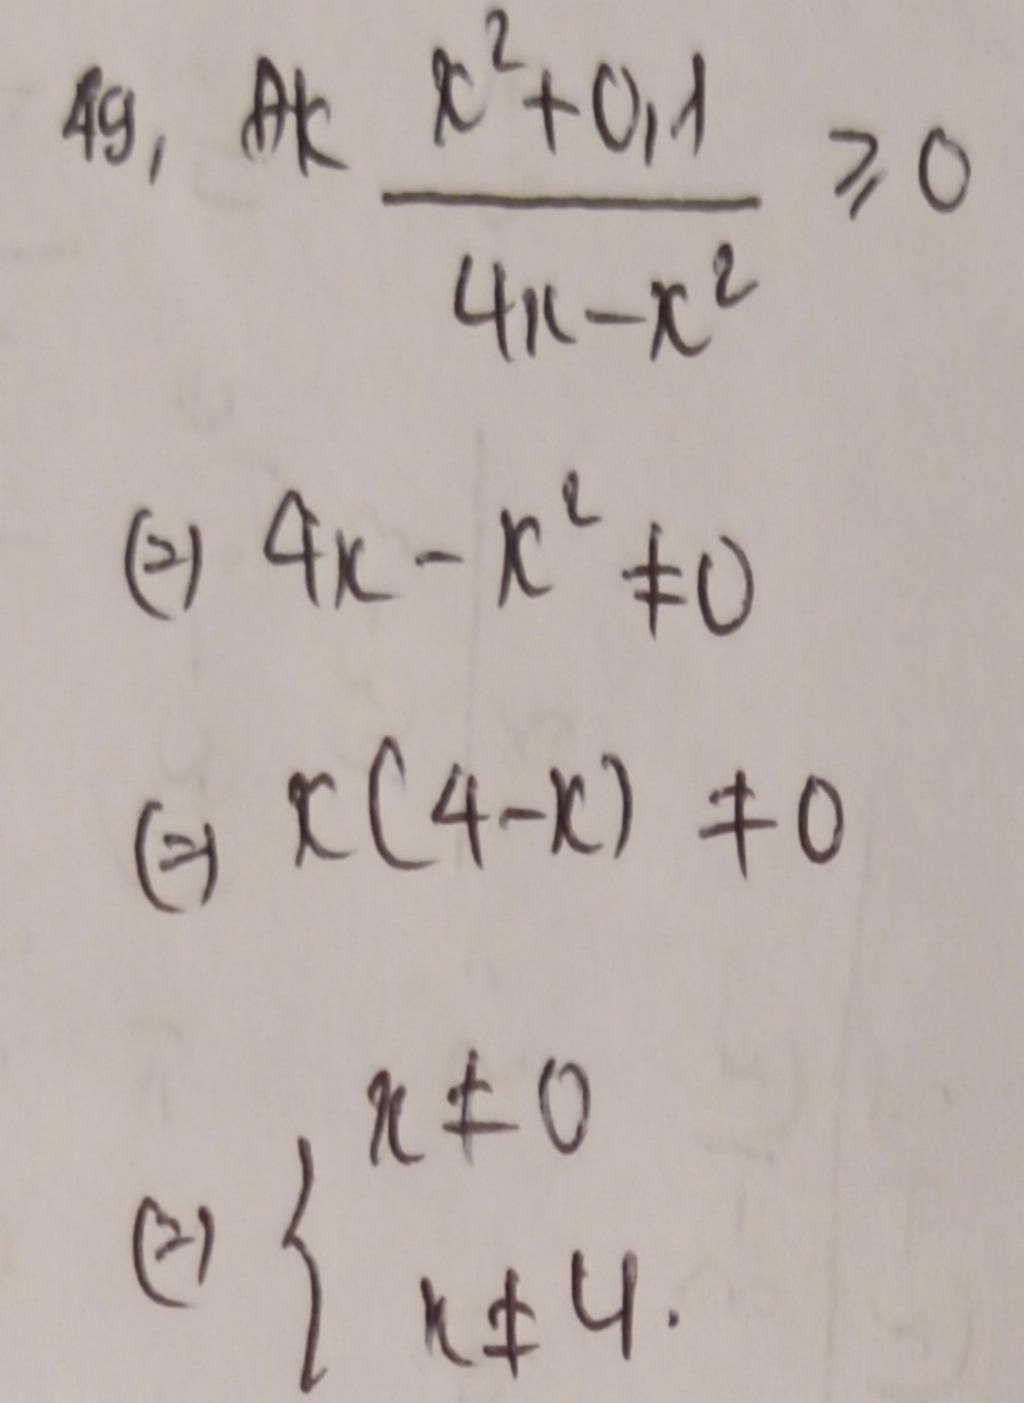 49, ĐK \frac{x^2+0,1}{4x-x^2} ⩾ 0
(=) 4x - x² ≠ 0
(=) x(4-x) ≠ 0
(=) { x ≠ 0
x ≠ 4.